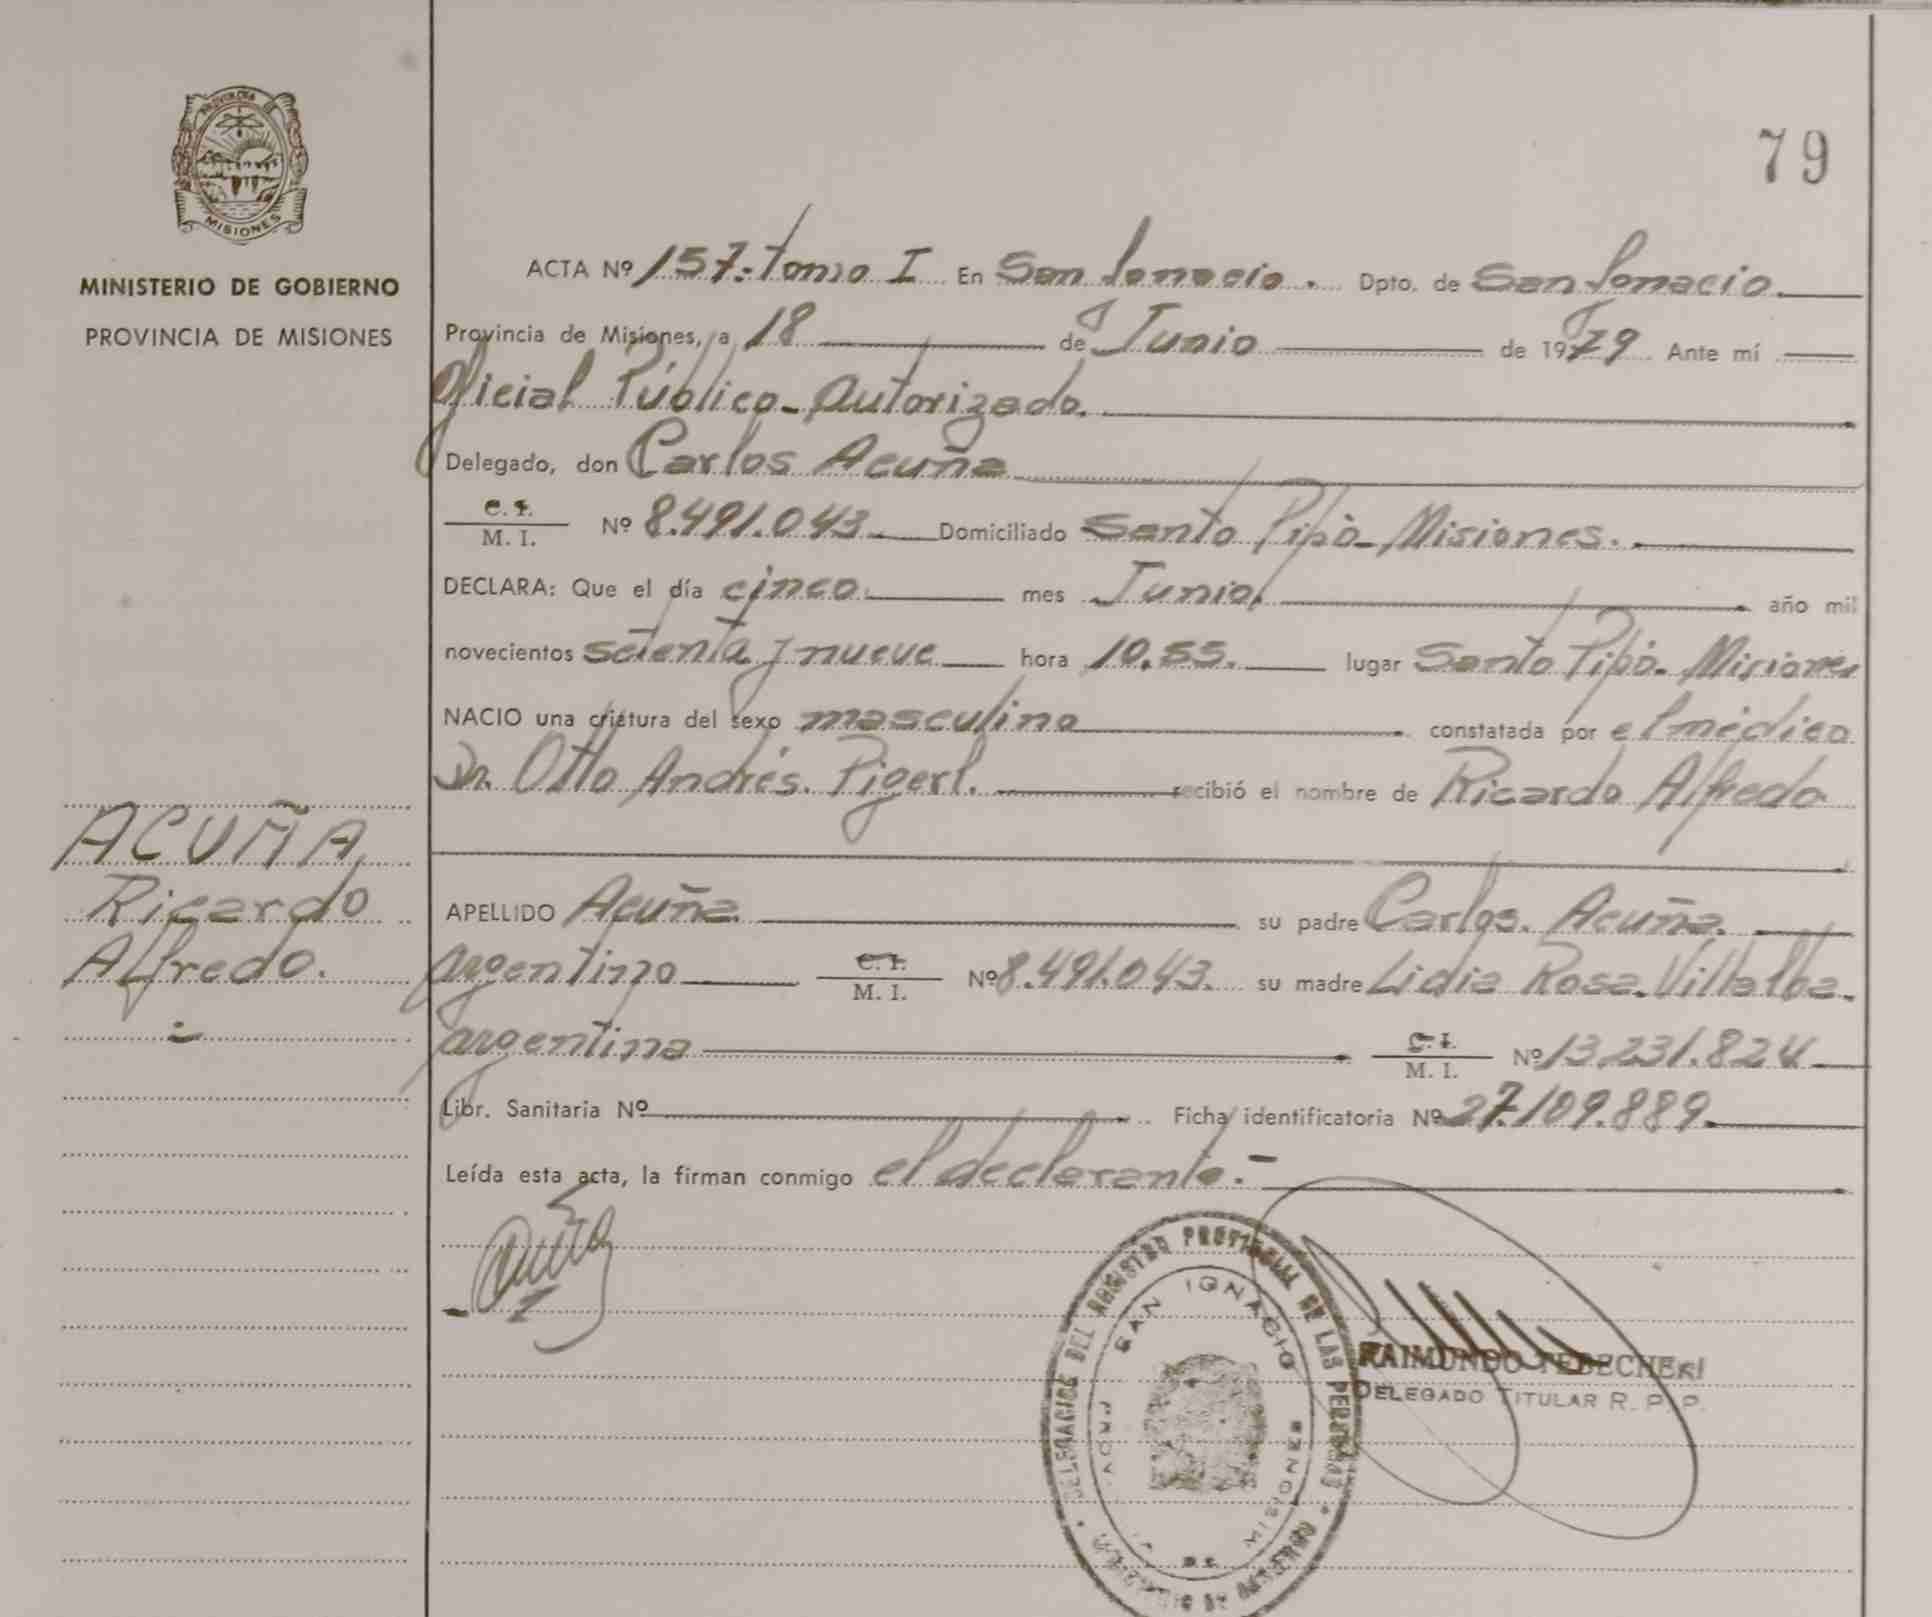 PROVINCIA
MISIONES
MINISTERIO DE GOBIERNO
PROVINCIA DE MISIONES
ACUÑA
Ricardo
Alfredo.
79
ACTA Nº 157.- tomo I En San Ignacio. Dpto. de San Ignacio.
Provincia de Misiones, a 18 de Junio de 1979 Ante mí
Oficial Público - Autorizado.
Delegado, don Carlos Acuña
C. I.
M. I. Nº 8.491.043 Domiciliado Santo Pipó - Misiones.
DECLARA: Que el día cinco mes Junio, año mil
novecientos setenta y nueve hora 10.55. lugar Santo Pipó - Misiones
NACIO una criatura del sexo masculino constatada por el médico
Dr. Otto Andrés. Pigerl. recibió el nombre de Ricardo Alfredo
APELLIDO Acuña su padre Carlos. Acuña.
argentino C. I. M. I. Nº 8.491.043. su madre Lidia Rosa. Villalba.
argentina C. I. M. I. Nº 13.231.824
Libr. Sanitaria Nº Ficha identificatoria Nº 27.109.889.
Leída esta acta, la firman conmigo el declarante.-
DELEGACION DEL REGISTRO PROVINCIAL DE LAS PERSONAS
SAN IGNACIO
PROV. MISIONES
RAIMUNDO
DELEGADO TITULAR R. P. P.